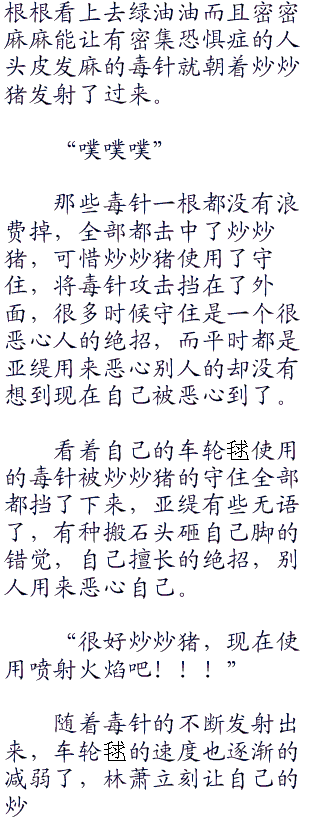 根根看上去绿油油而且密密
麻麻能让有密集恐惧症的人
头皮发麻的毒针就朝着炒炒
猪发射了过来。
“噗噗噗”
那些毒针一根都没有浪
费掉，全部都击中了炒炒
猪，可惜炒炒猪使用了守
住，将毒针攻击挡在了外
面，很多时候守住是一个很
恶心人的绝招，而平时都是
亚缇用来恶心别人的却没有
想到现在自己被恶心到了。
看着自己的车轮毬使用
的毒针被炒炒猪的守住全部
都挡了下来，亚缇有些无语
了，有种搬石头砸自己脚的
错觉，自己擅长的绝招，别
人用来恶心自己。
“很好炒炒猪，现在使
用喷射火焰吧！！！”
随着毒针的不断发射出
来，车轮毬的速度也逐渐的
减弱了，林萧立刻让自己的
炒